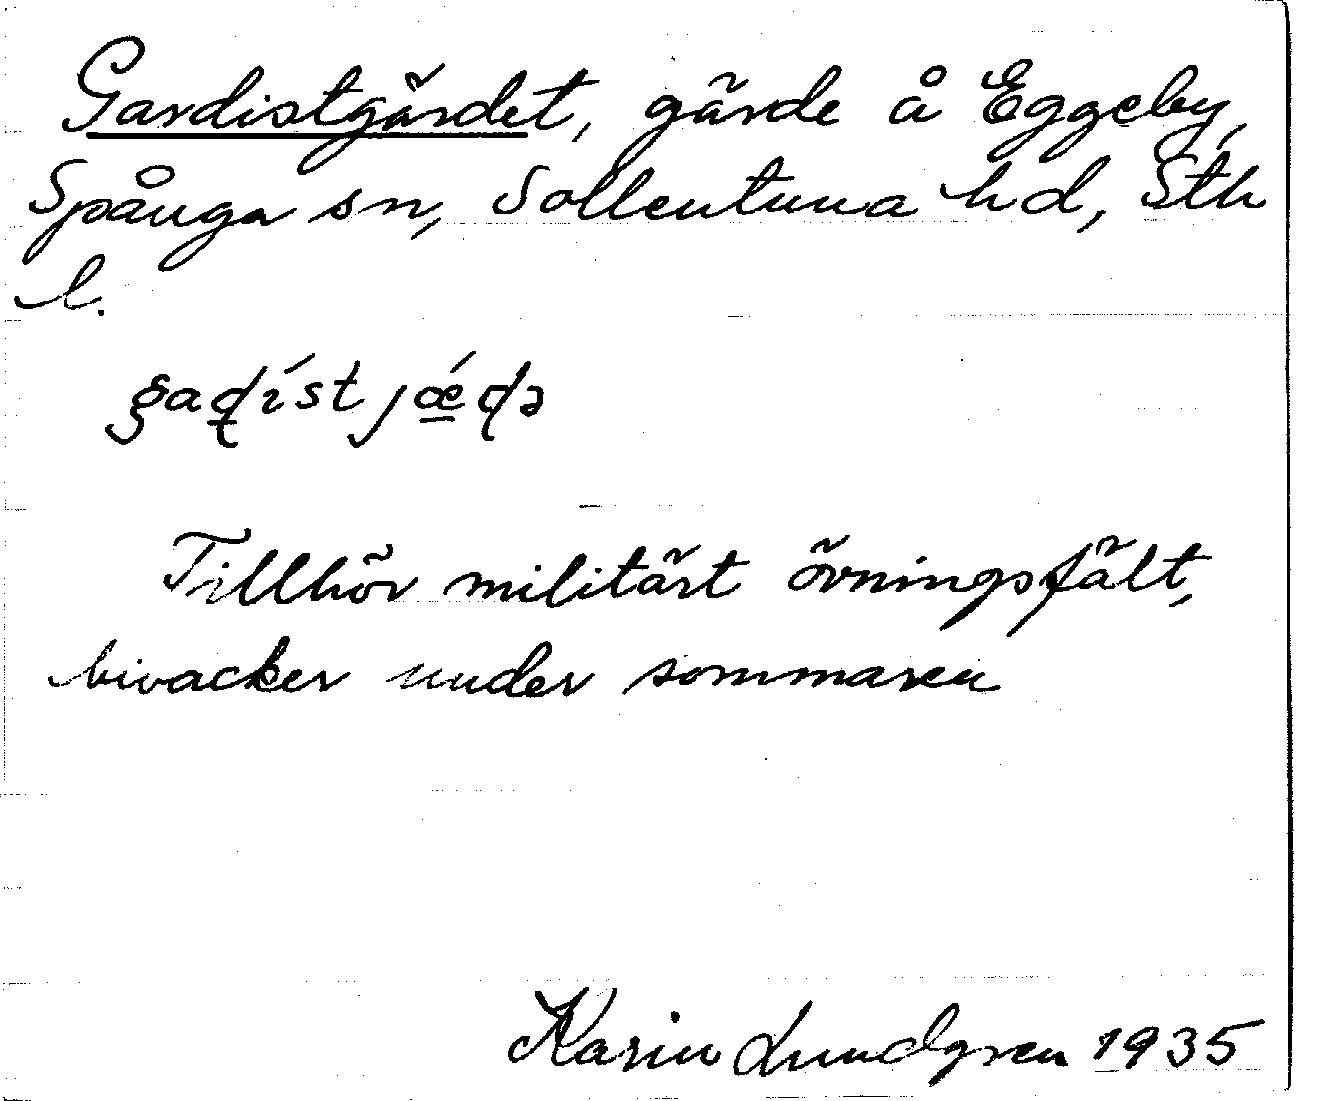 Gardistgärdet, gärde å Eggeby,
Spånga sn, Sollentuna hd, Sth
l.
gaɖíst jǽɖə
Tillhör militärt övningsfält,
bivacker under sommaren
Karin Lundgren 1935